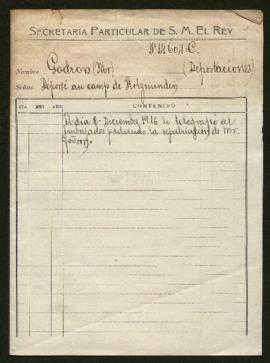 SECRETARIA PARTICULAR DE S. M. EL REY
Nº 14604 C.
Nombre Godron (Mr) (Deportaciones)
Señas Déporté au camp de Holzminden
DIA MES AÑO CONTENIDO
El dia 8 Diciembre 1916 se telegrafió al
Embajador pidiendo la repatriación de Mr.
Godron.